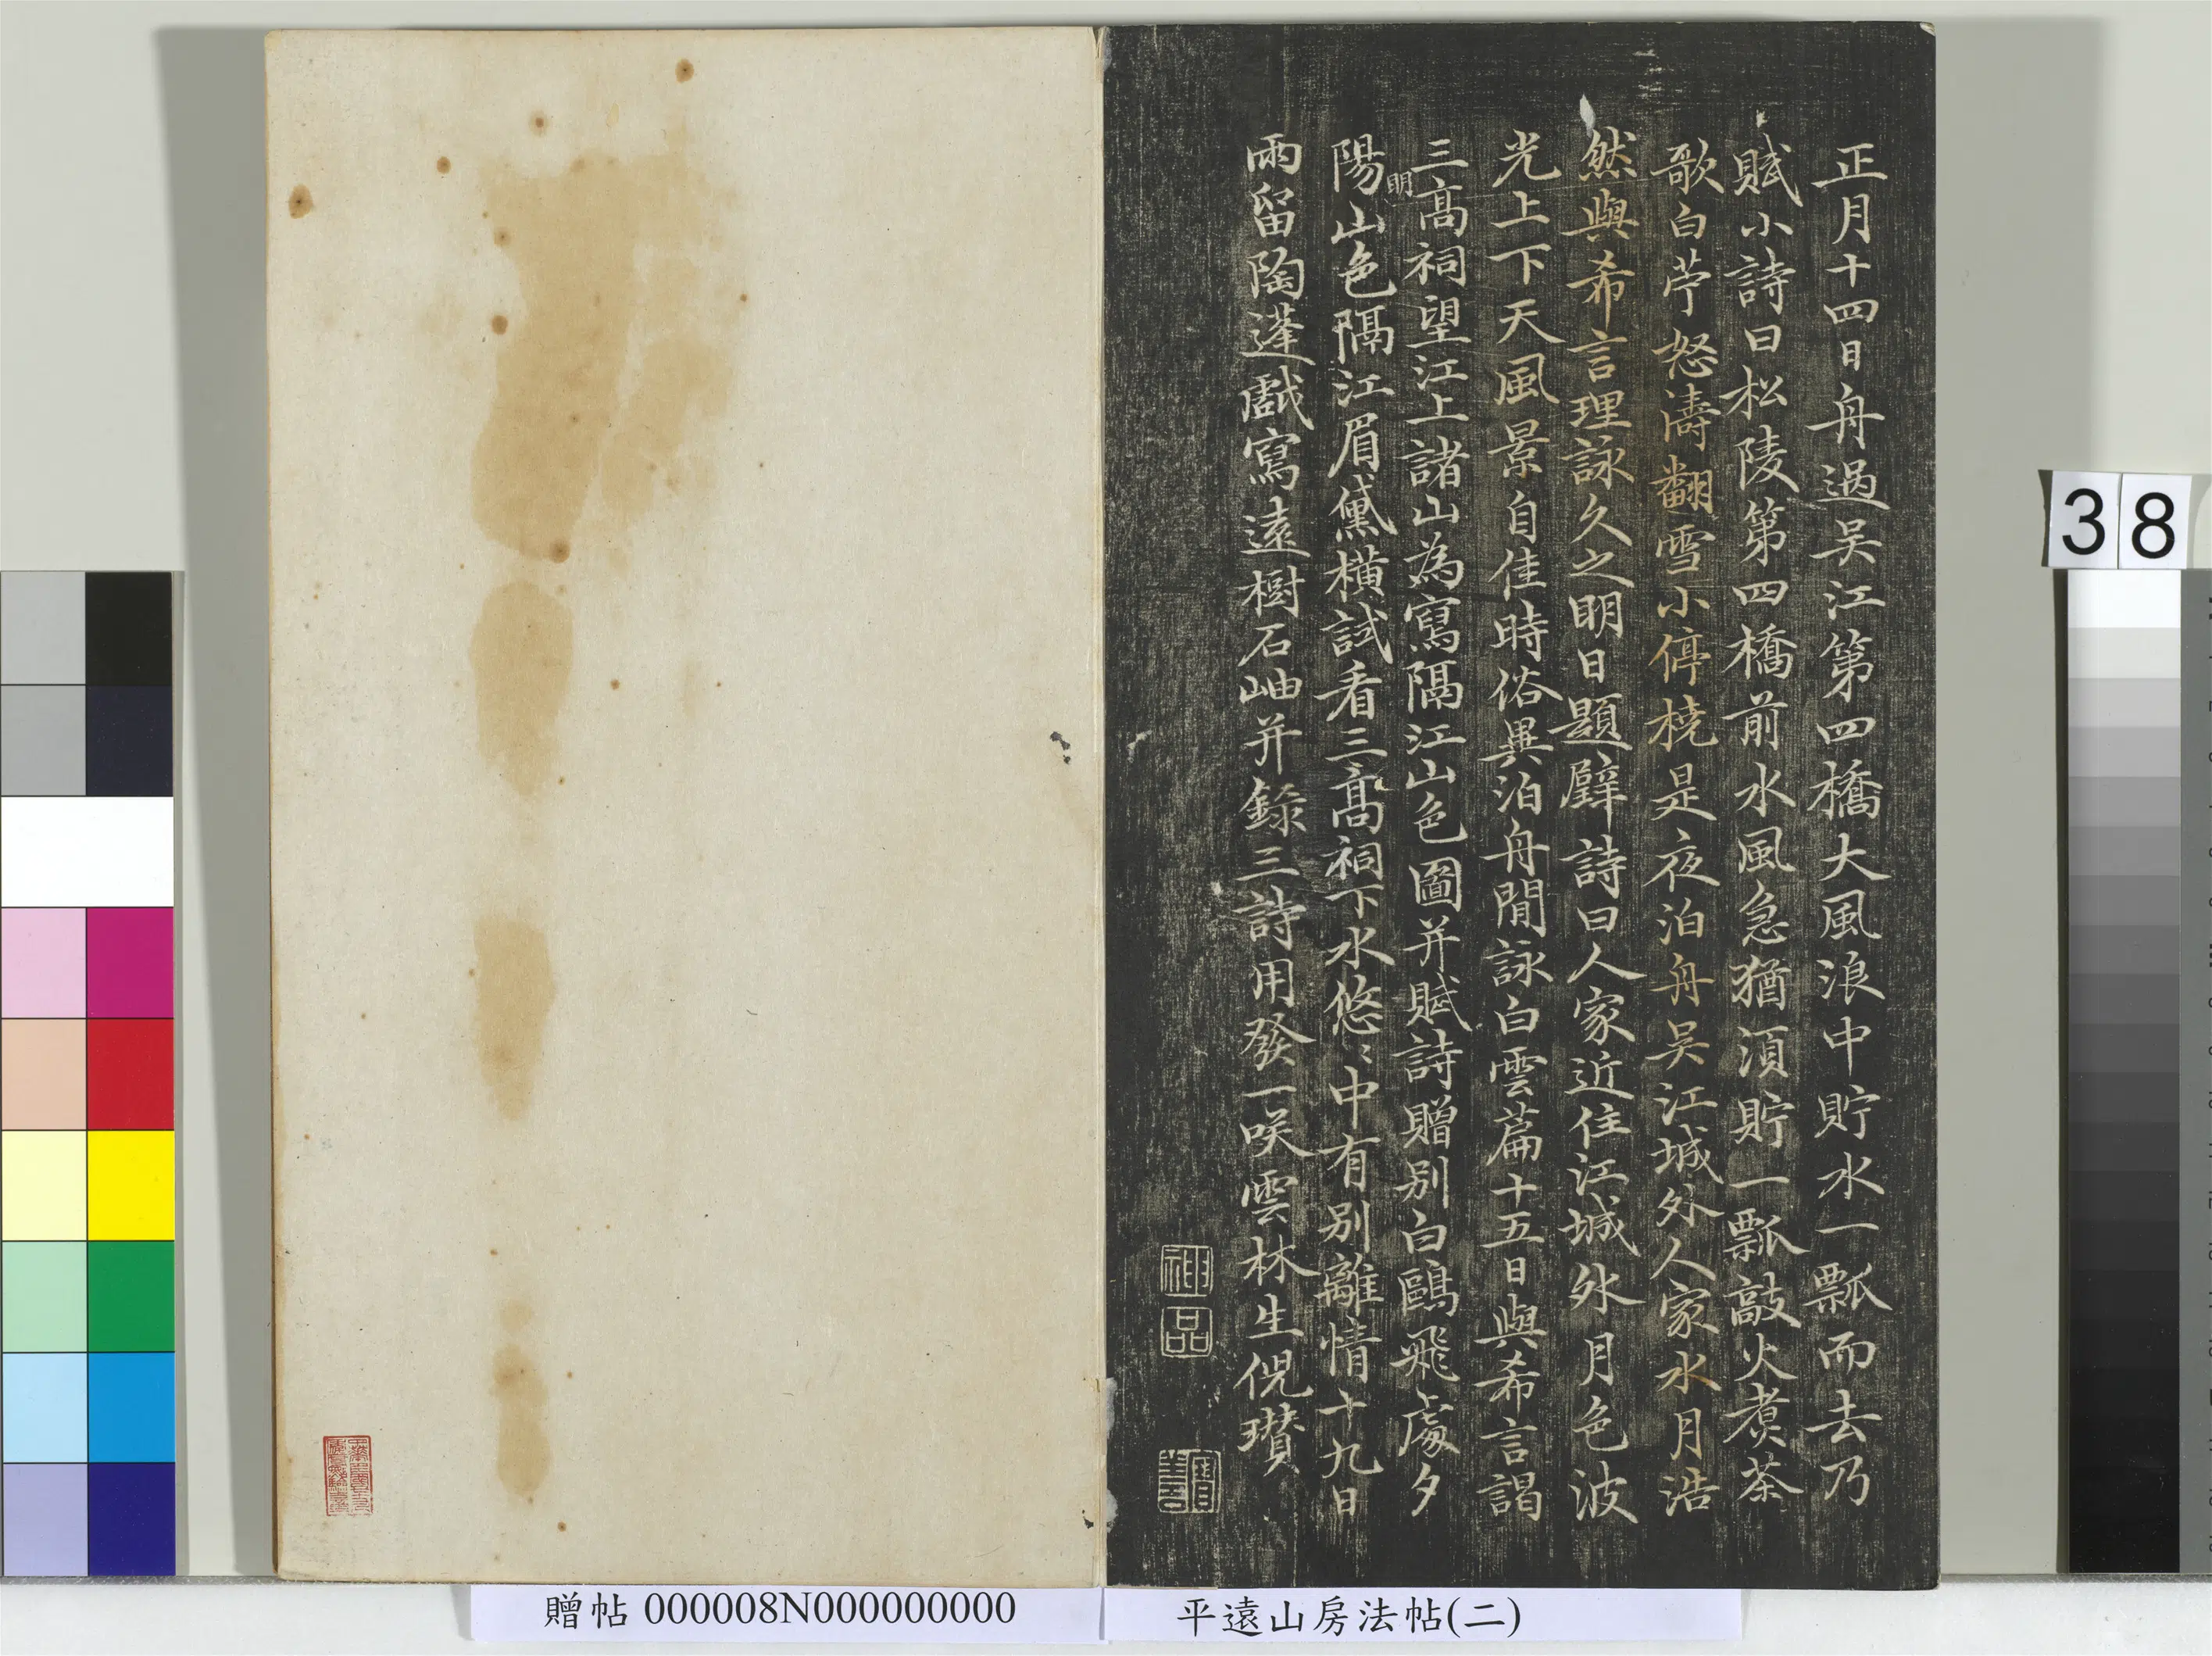 正月十四日舟過吴江第四橋大風浪中貯水一瓢而去乃
賦小詩曰松陵第四橋前水風急猶須貯一瓢敲火煮茶
歌白苧怒濤翻雪小停橈是夜泊舟吴江城外人家水月浩
然與希言理詠久之明日題壁詩曰人家近住江城外月色波
光上下天風景自佳時俗異泊舟閒詠白雲篇十五日與希言謁
三高祠望江上諸山為寫隔江山色圖并賦詩贈别白鷗飛處夕
陽明山色隔江眉黛橫試看三高祠下水悠〻中有别離情十九日
雨留陶蓬戲寫遠樹石岫并錄三詩用發一咲雲林生倪瓚
神
品
38
贈帖 000008N000000000
平遠山房法帖(二)